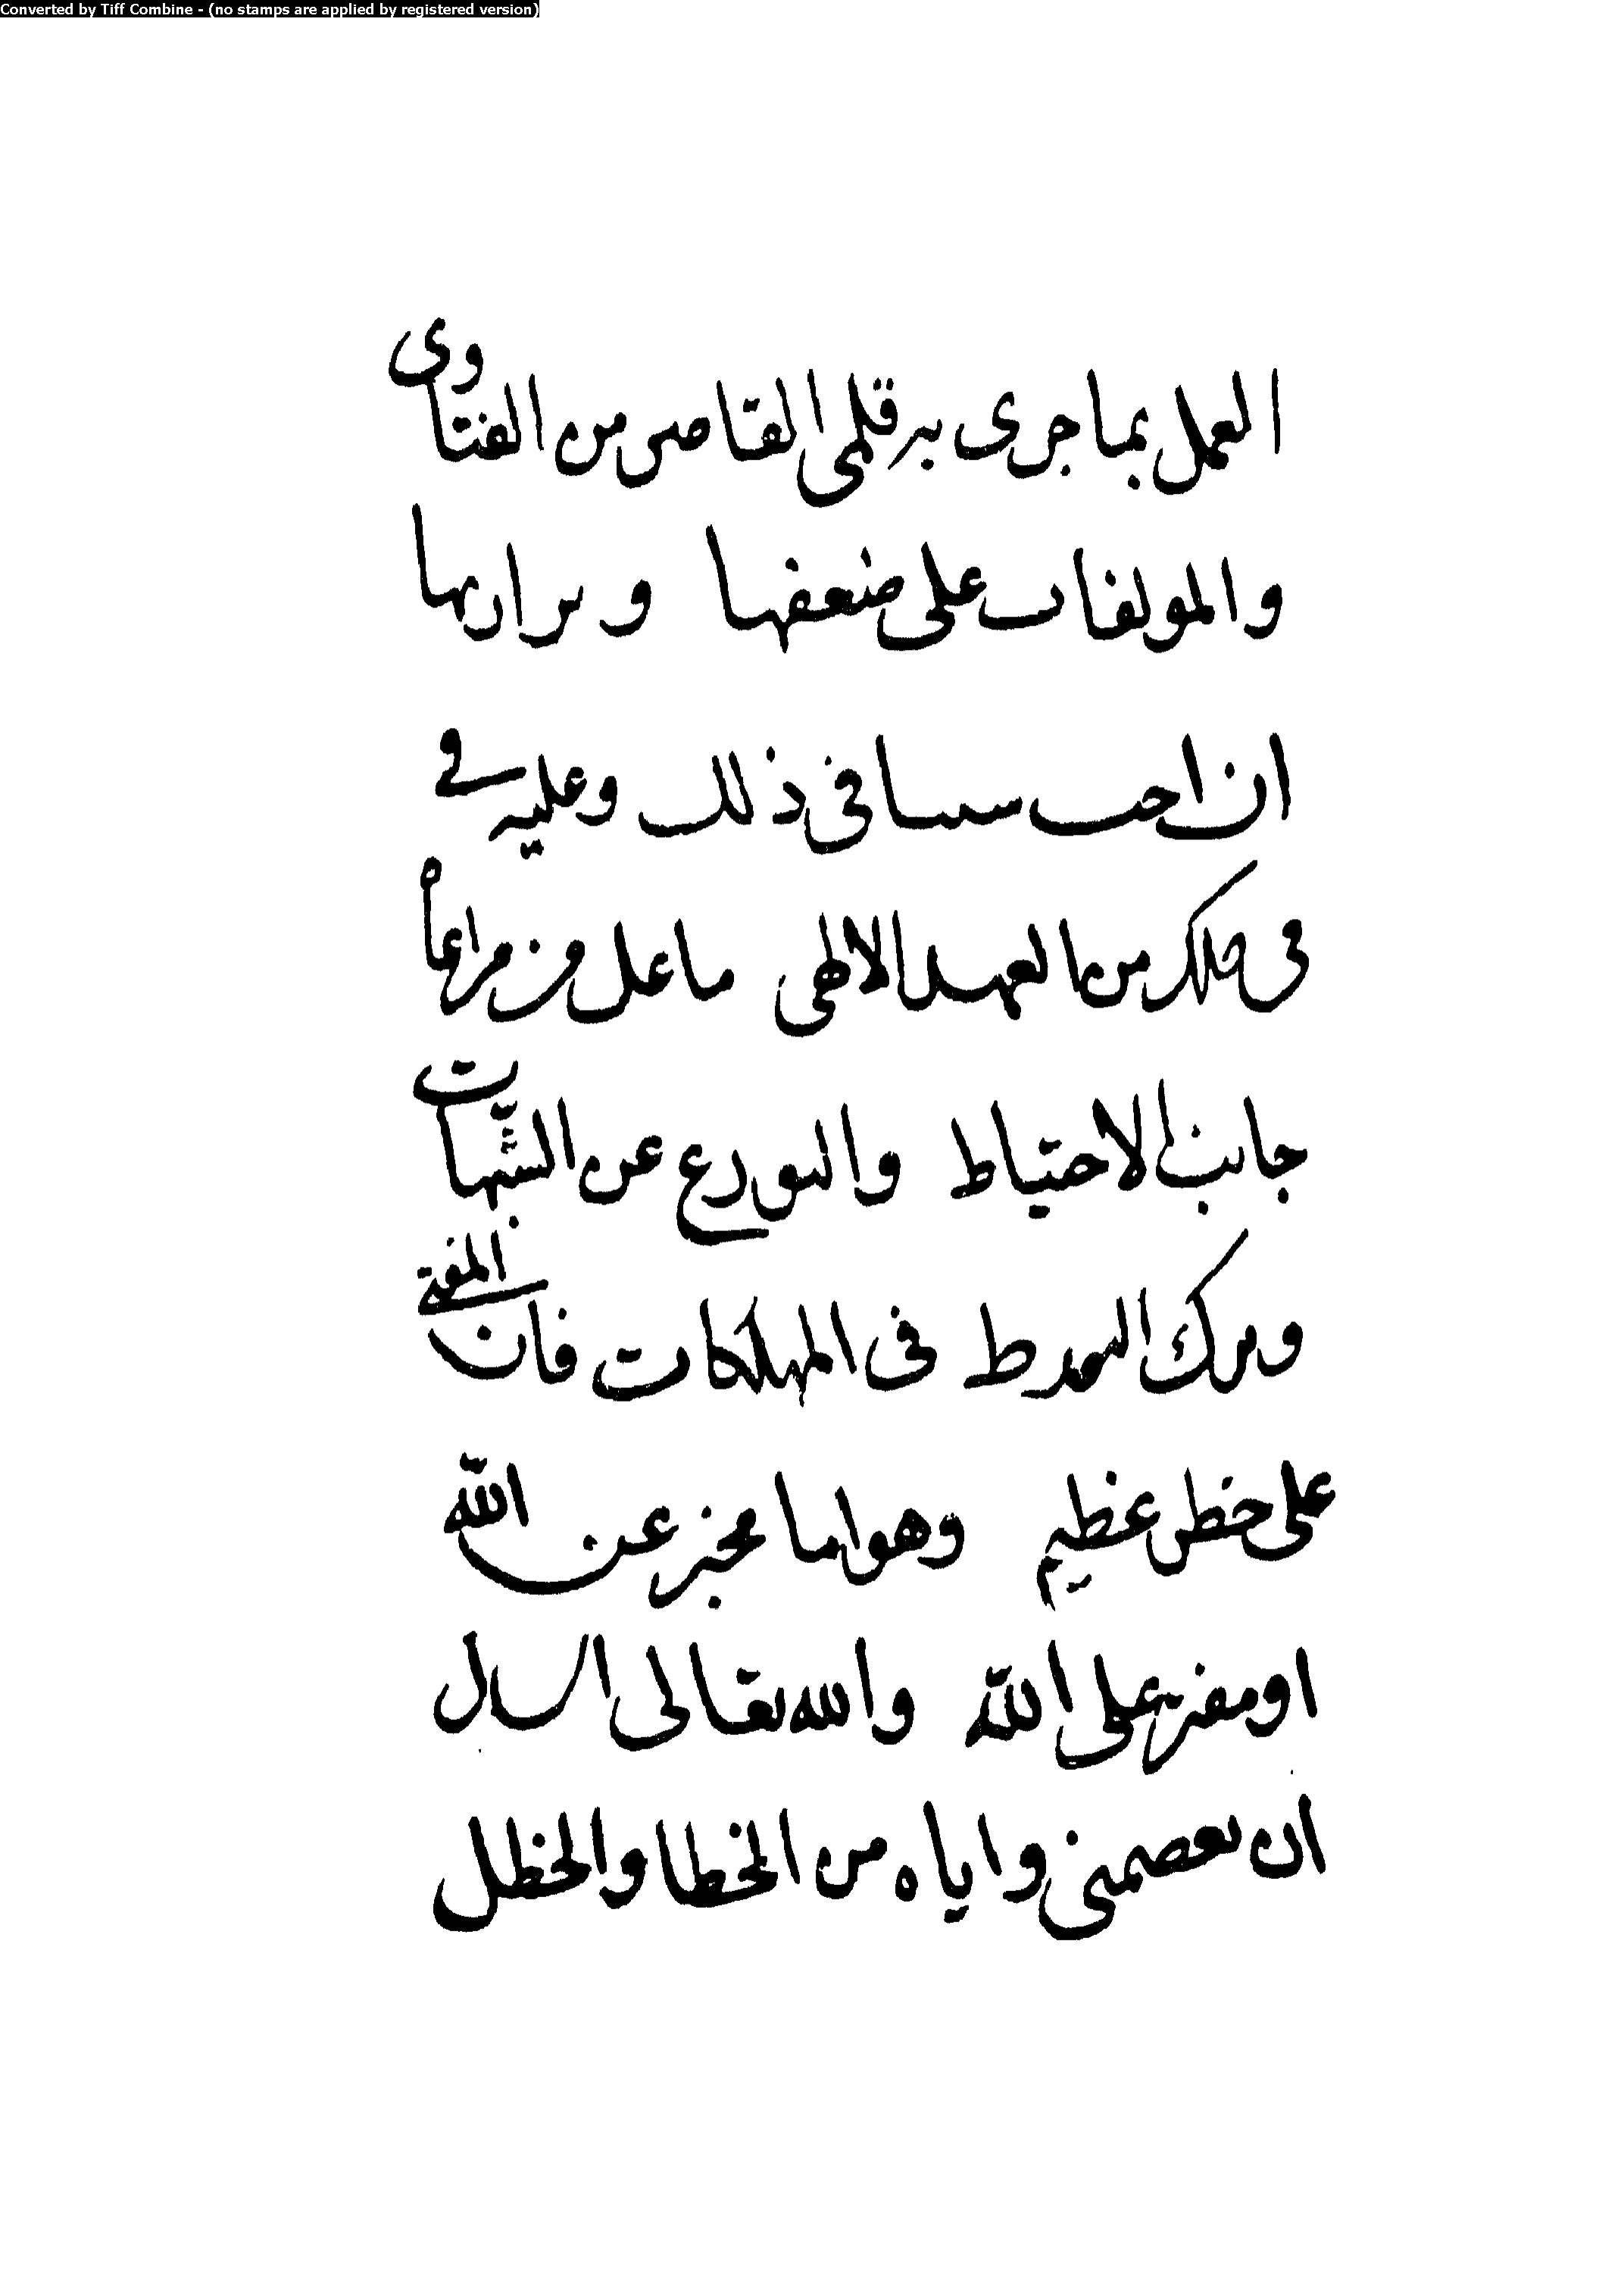 Converted by Tiff Combine - (no stamps are applied by registered version)
العمل بما جرى به قلمي القاصر من الفتاوى
والمولفات على ضعفها و نزارتها
ان احب سسا في ذلك وعليه في
في ذلك من العهد الالهي ما على من مراعاة
جانب الاحتياط والتورع عن الشبهات
وترك التورط في المهلكات فان المفتي
على خطر عظيم وهو اما مخبر عن الله
او مفتر على الله والله تعالى اسال
ان يعصمني واياه من الخطا والخطل